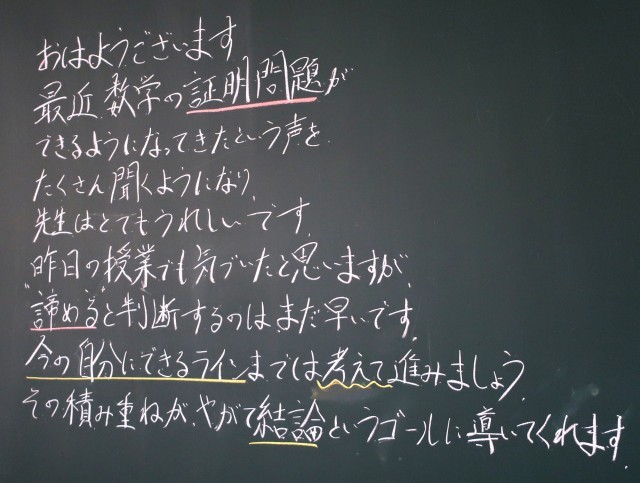 おはようございます
最近、数学の証明問題が
できるようになってきたという声を
たくさん聞くようになり、
先生はとてもうれしいです。
昨日の授業でも気づいたと思いますが、
"諦める"と判断するのはまだ早いです。
今の自分にできるラインまでは考えて進みましょう。
その積み重ねが、やがて結論というゴールに導いてくれます。